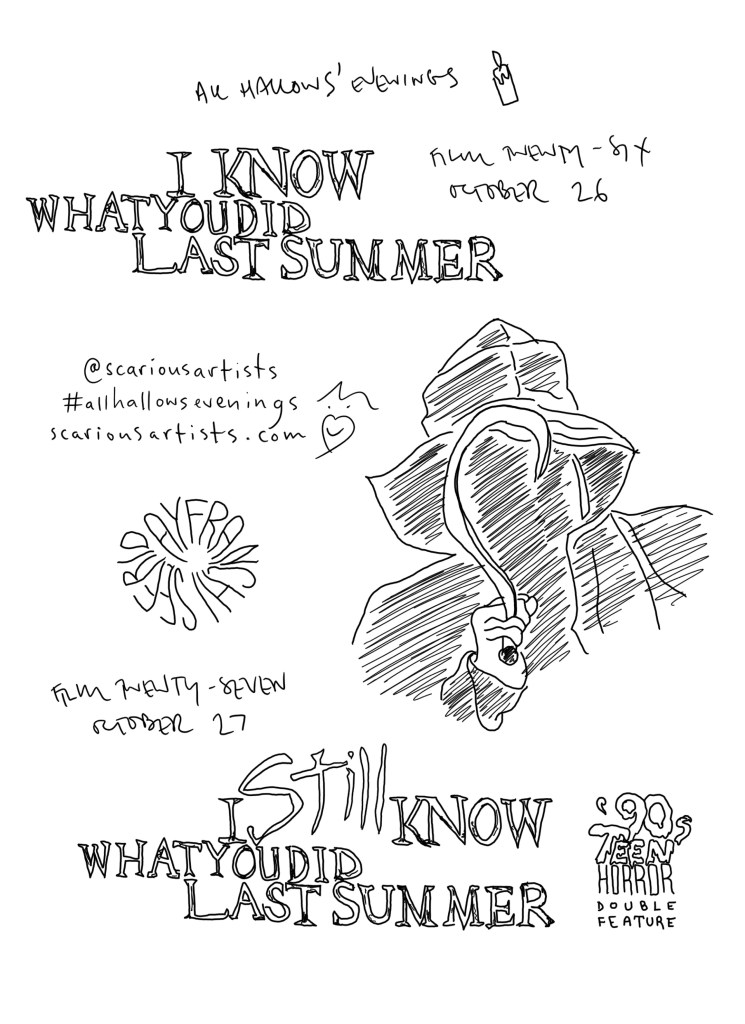 ALL HALLOWS' EVENINGS
I KNOW
WHAT YOU DID
LAST SUMMER
FILM TWENTY-SIX
OCTOBER 26
@scariousartists
#allhallowsevenings
scariousartists.com
FILM TWENTY-SEVEN
OCTOBER 27
I Still KNOW
WHAT YOU DID
LAST SUMMER
'90s
TEEN
HORROR
DOUBLE
FEATURE